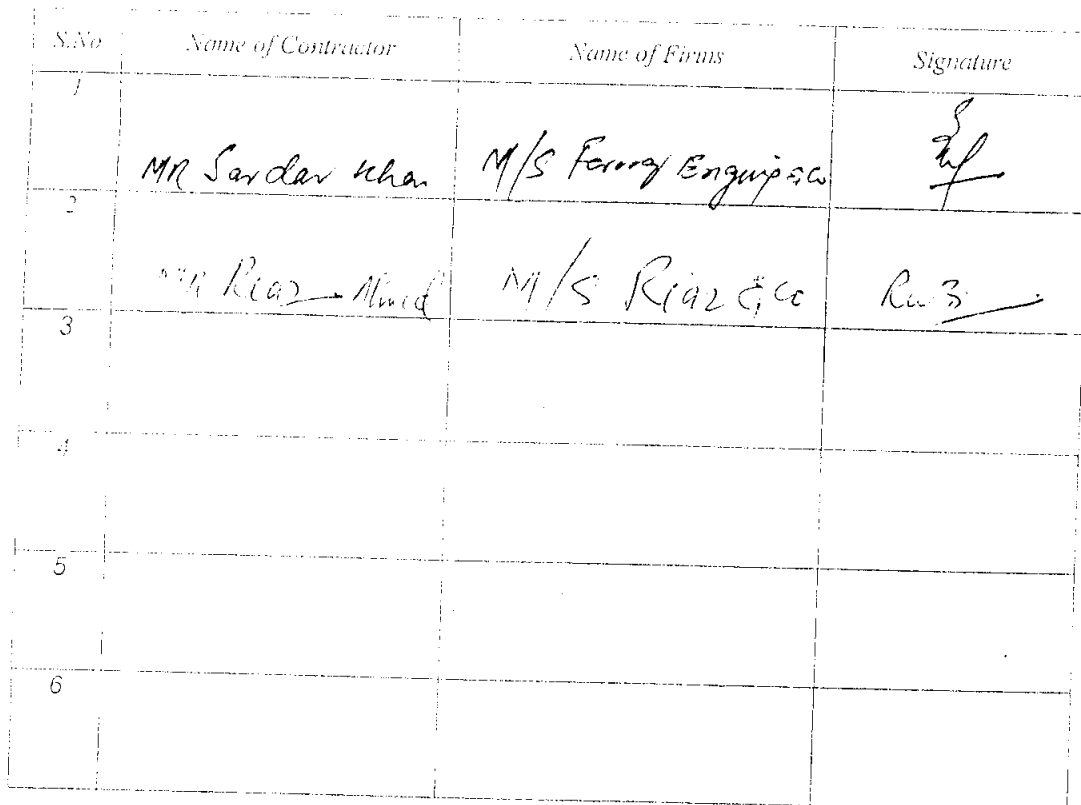 S.No Name of Contractor Name of Firms Signature
1
MR Sardar Khan M/S Engg &Co
2
MR Riaz Ahmed M/S Riaz & Co Riaz
3
4
5
6